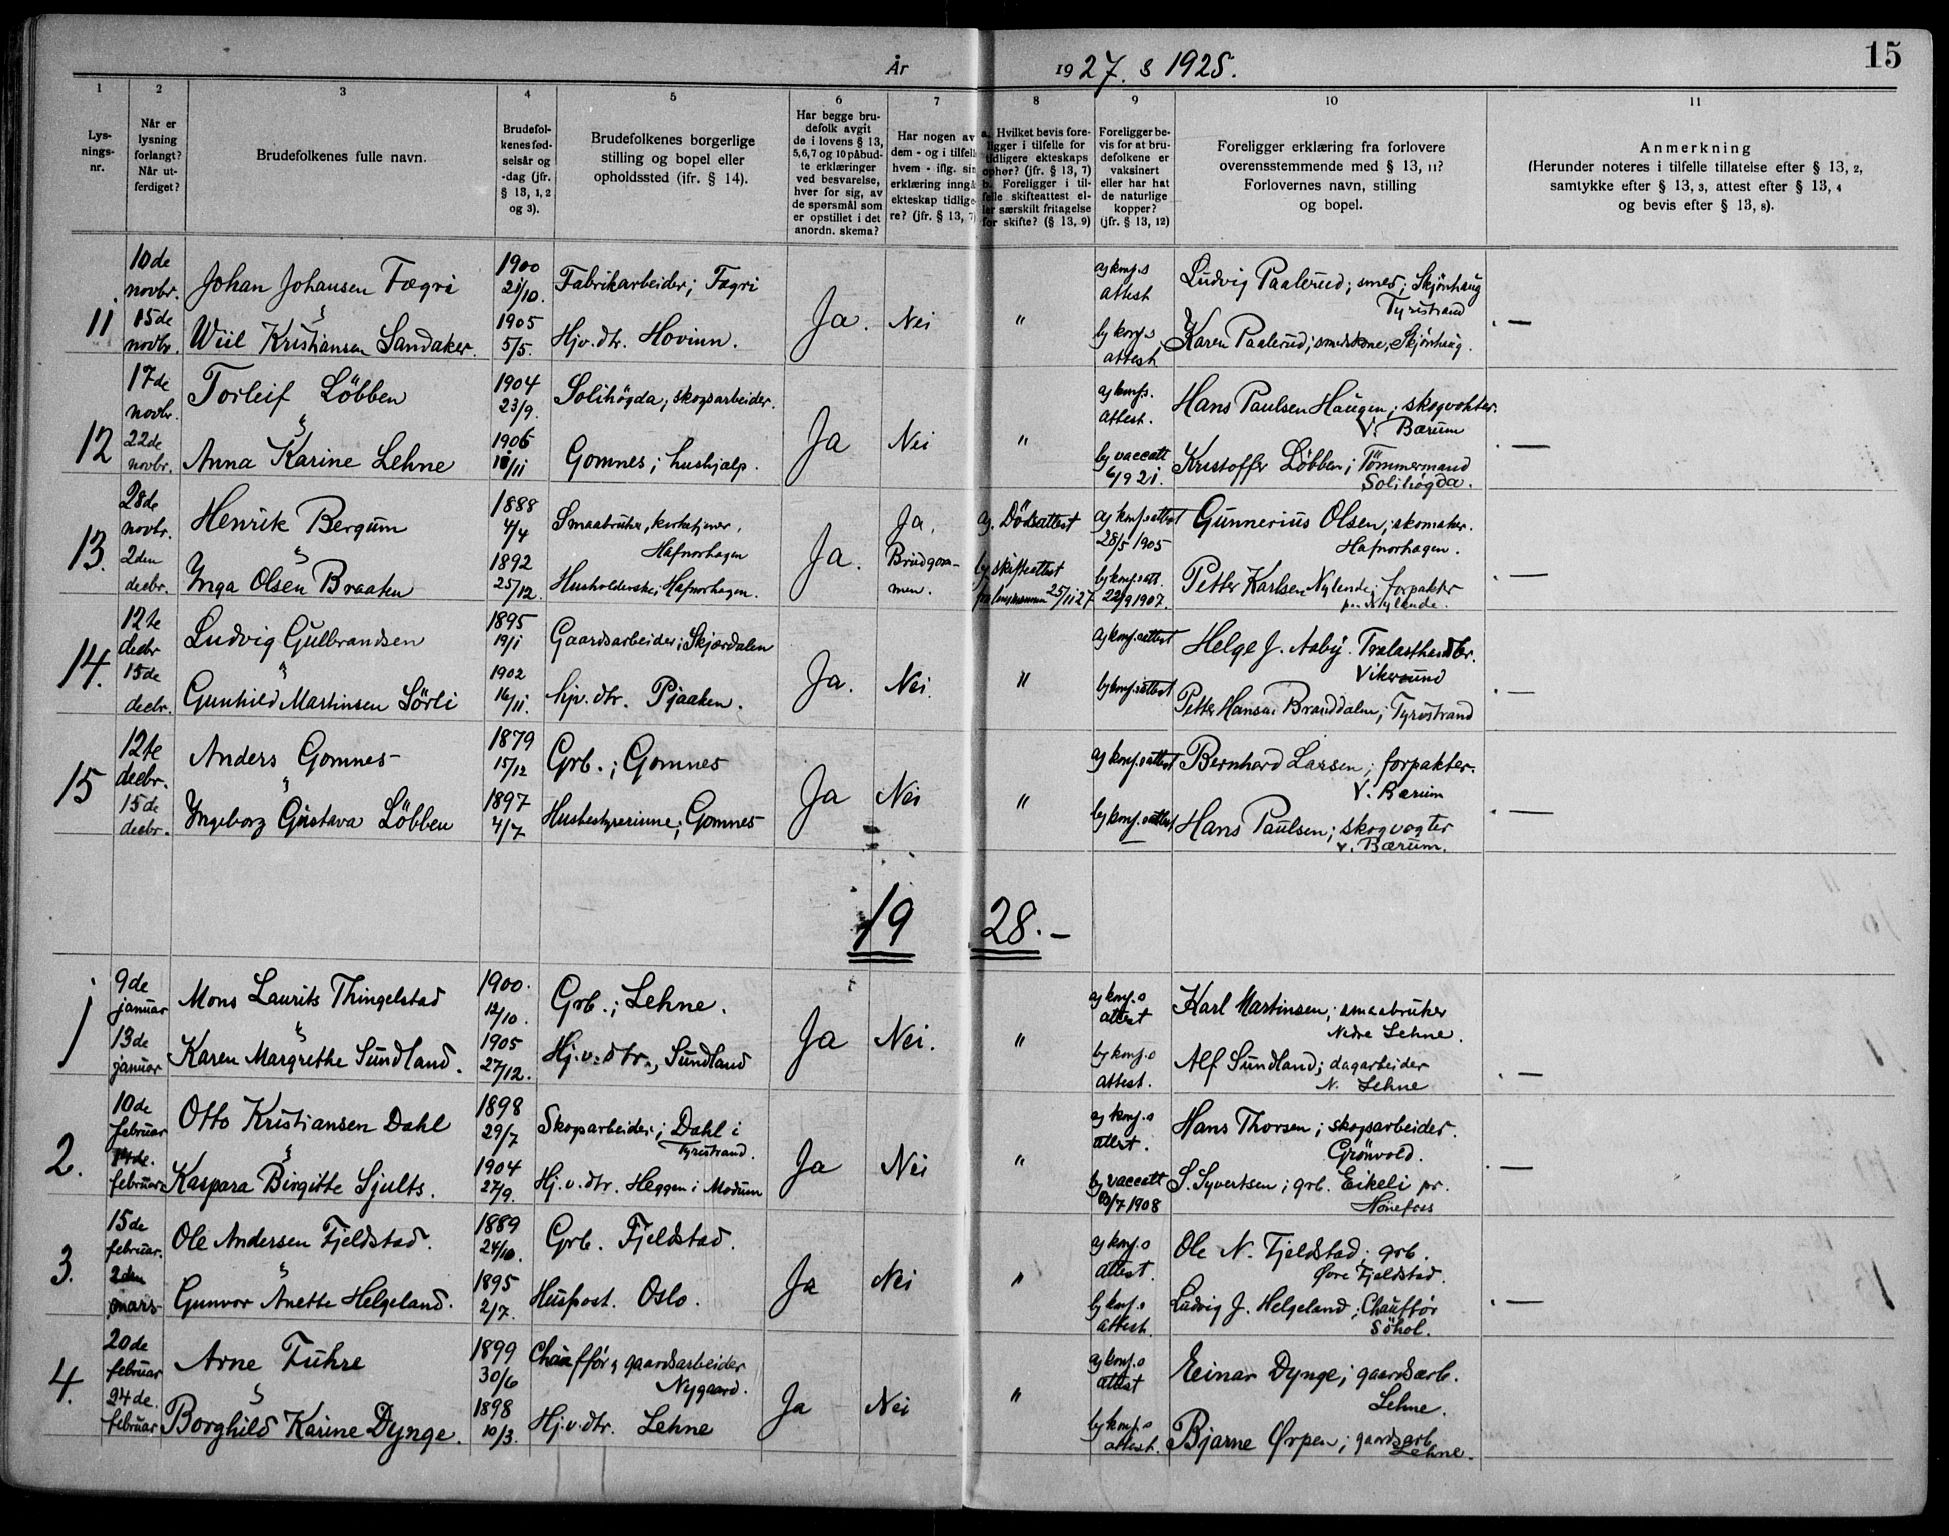 År 1927. & 1928.
15
1
2
3
4
5
6
7
8
9
10
11
Lysningsnr.
Når er lysning forlangt? Når utferdiget?
Brudefolkenes fulle navn.
Brudefolkenes fødselsår og -dag (jfr. § 13, 1, 2 og 3).
Brudefolkenes borgerlige stilling og bopel eller opholdssted (ifr. § 14).
Har begge brudefolk avgit de i lovens § 13, 5, 6, 7 og 10 påbudte erklæringer ved besvarelse, hver for sig, av de spørsmål som er opstillet i det anordn. skema?
Har nogen av dem - og i tilfelle hvem - iflg. sin erklæring inngå ekteskap tidligere? (jfr. § 13, 7)
a. Hvilket bevis foreligger i tilfelle for tidligere ekteskaps ophør? (jfr. § 13, 7) b. Foreligger i tilfelle skifteattest eller særskilt fritagelse for skifte? (§ 13, 9)
Foreligger bevis for at brudefolkene er vaksinert eller har hat de naturlige kopper? (jfr. § 13, 12)
Foreligger erklæring fra forlovere overensstemmende med § 13, 11? Forlovernes navn, stilling og bopel.
Anmerkning (Herunder noteres i tilfelle tillatelse efter § 13, 2, samtykke efter § 13, 3, attest efter § 13, 4 og bevis efter § 13, 8).
11
10de novbr.
15de novbr.
Johan Johansen Fægri
&
Wiil Kristiansen Sandaker.
1900 21/10.
1905 5/5.
Fabrikarbeider; Fægri
Hjv. dtr. Hovinn.
Ja.
Nei
"
a) konf.s attest
b) konf.s attest
Ludvig Paalerud; smed; Skjønhaug Tyristrand
Karen Paalerud; smedskone, Skjønhaug.
. —
12
17de novbr.
22de novbr.
Torleif Löbben
&
Anna Karine Lehne
1904 23/9.
1906 /11
Solihögda; skogsarbeider.
Gomnes; hushjælp.
Ja
Nei
"
a) konf.s. attest.
b) vaccatt 6/9 21.
Hans Paulsen Haugen; skogvokter. V. Bærum
Kristoffer Löbben; Tömmermand Solihögda.
. —
13.
28de novbr.
2den decbr.
Henrik Bergum
&
Ynga Olsen Braaten
1888 4/4
1892 25/12.
Smaabruker, kirketjener, Hafnorhagen
Husholderske; Hafnorhagen.
Ja.
Ja, Brudgommen.
a). Dødsattest
b) skifteattest fra lensmannen 25/11 27
a) konf.sattest 28/5 1905
b) konf.s att. 22/9 1907.
Gunnerius Olsen; skomaker. Hafnorhagen.
Petter Karlsen Nylende; forpakter pr. Nylende.
. —
14.
12te decbr
15de decbr.
Ludvig Gulbrandsen
&
Gunhild Martinsen Sörli
1895 19/1
1902 16/11.
Gaardsarbeider; Skjærdalen
hjv. dtr. Pjaaken.
Ja.
Nei.
"
a) konf.sattest
b) konf.sattest
Helge J. Aaby. Trælasthandler. Vikersund
Petter Hansen Branddalen; Tyristrand
. —
15
12te decbr.
15de decbr.
Anders Gomnes
&
Yngeborg Gustava Löbben
1879 15/12
1897 4/7
Grb.; Gomnes
Husbestyrerinne; Gomnes
Ja
Nei
"
a) konf.sattest
b) konf.sattest
Bernhard Larsen; forpakter. V. Bærum
Hans Paulsen; skogvogter V. Bærum.
. —
1928. —
1
9de januar
13de januar
Mons Laurits Thingelstad
&
Karen Margrethe Sundland.
1900. 12/10.
1905 27/12.
Grb.; Lehne.
Hj. v. dtr., Sundland
Ja
Nei.
"
a) konf.s attest
b) konf.s attest.
Karl Martinsen; smaabruker Nedre Lehne.
Alf Sundland; dagarbeider N. Lehne
. —
2.
10de februar
14de. februar
Otto Kristiansen Dahl
&
Kaspara Birgitte Sjults.
1898 29/7
1904 27/9.
Skogsarbeider; Dahl i Tyristrand.
Hj. v. dtr. Heggen i Modum
Ja
Nei
"
a) konf.s attest.
b) vaccatt /7 1908
Hans Thorsen; skogsarbeider. Grönvold.
S. Syvertsen; grb. Eikeli pr. Hönefoss
. —
3.
15de februar.
2den mars
Ole Andersen Fjeldstad.
&
Gunvor Anette Helgeland.
1889 24/10.
1895 2/7.
Grb. Fjeldstad.
Huspost. Oslo.
Ja
Nei
"
a) konf.s attest.
b) konf.s attest.
Ole N. Fjeldstad; grb. Øvre Fjeldstad.
Ludvig J. Helgeland; Chauffør Söhol.
. —
4.
20de februar
24de. februar
Arne Fuhre
&
Borghild Karine Dynge.
1899 30/6
1898 10/3.
Chauffør & gaardsarbeider Nygaard.
Hj. v. dtr. Lehne
Ja
Nei
"
a) konf.s attest
b) konf.s attest.
Einar Dynge; gaardsarb. Lehne.
Bjarne Ørpen; gaardsarb. Lehne.